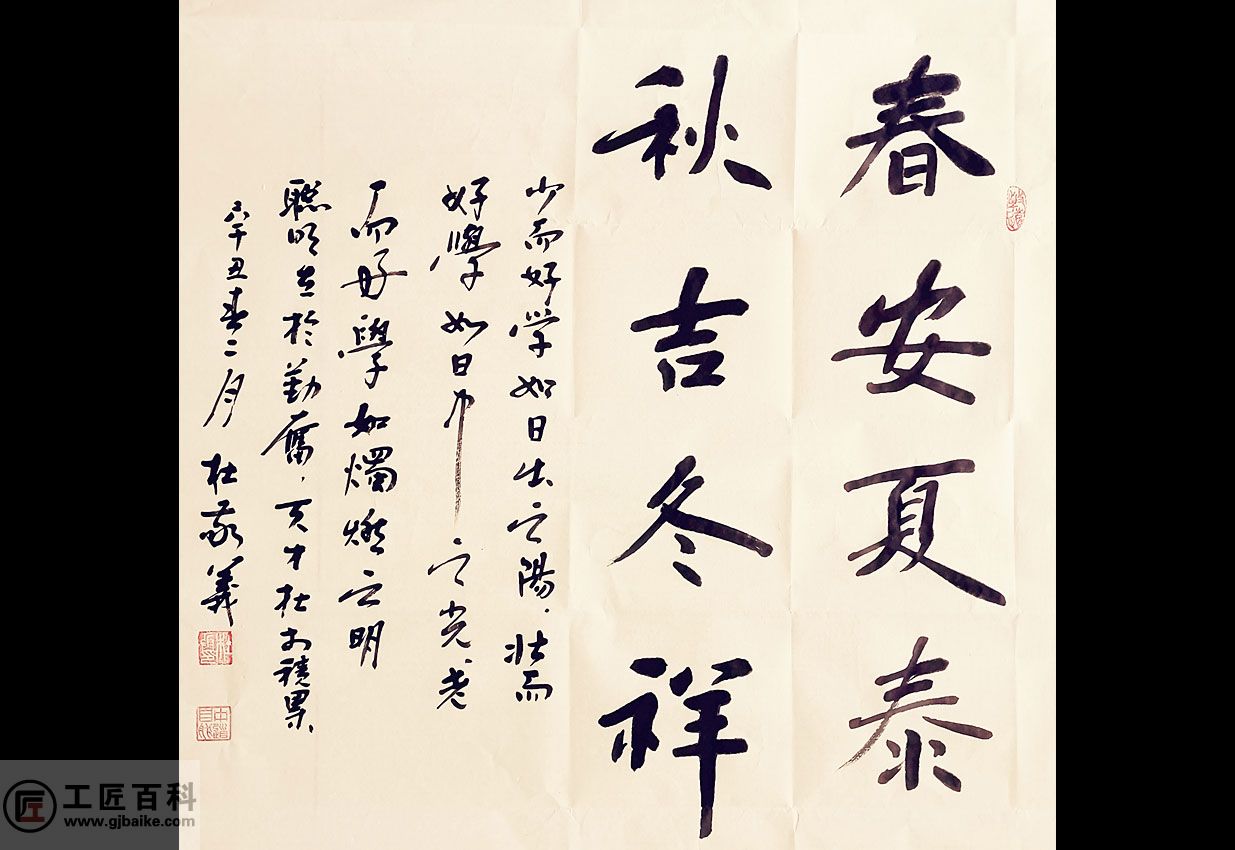 春安夏泰
秋吉冬祥
少而好学如日出之陽，壮而
好學如日中之光老
而好學如燭燃之明
聰明在於勤奮，天才在於積累
辛丑春二月 杜敬義
工匠百科
www.gjbaike.com